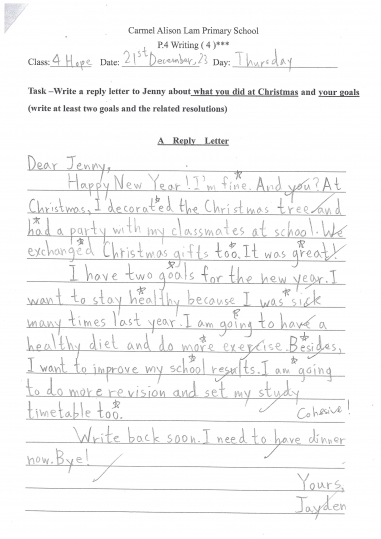 Carmel Alison Lam Primary School
P.4 Writing ( 4 )***
Class: 4 Hope Date: 21st December, 23 Day: Thursday
Task –Write a reply letter to Jenny about what you did at Christmas and your goals
(write at least two goals and the related resolutions)
A Reply Letter
Dear Jenny,
Happy New Year! I'm fine. And you? At
Christmas, I decorated the Christmas tree and
had a party with my classmates at school. We
exchanged Christmas gifts too. It was great!
I have two goals for the new year. I
want to stay healthy because I was sick
many times last year. I am going to have a
healthy diet and do more exercise. Besides,
I want to improve my school results. I am going
to do more revision and set my study
timetable too.
Cohesive!
Write back soon. I need to have dinner
now. Bye!
Yours,
Jayden